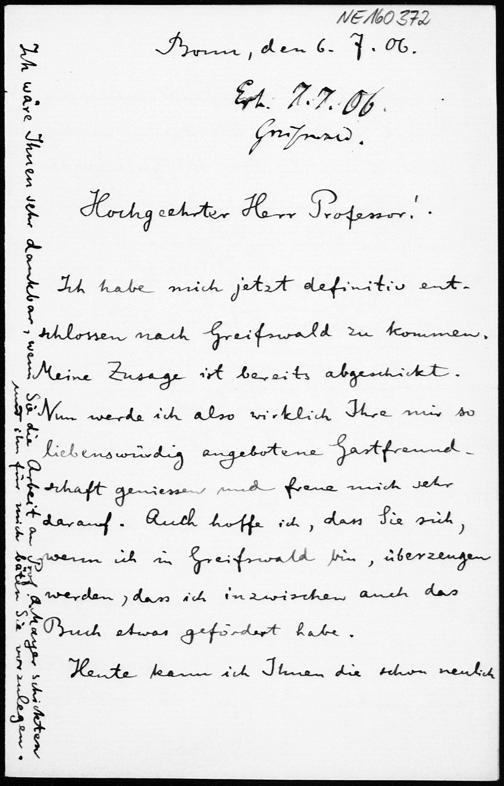 NE160372
Bonn, den 6. 7. 06.
Erh. 7.7.06.
Greifswald.
Hochgeehrter Herr Professor!
Ich habe mich jetzt definitiv ent-
schlossen nach Greifswald zu kommen.
Meine Zusage ist bereits abgeschickt.
Nun werde ich also wirklich Ihre mir so
liebenswürdig angebotene Gastfreund-
schaft geniessen und freue mich sehr
darauf. Auch hoffe ich, dass Sie sich,
wenn ich in Greifswald bin, überzeugen
werden, dass ich inzwischen auch das
Buch etwas gefördert habe.
Heute kann ich Ihnen die schon neulich
Ich wäre Ihnen sehr dankbar, wenn Sie die Arbeit an Prof. A. Mayer schickten
und ihn für mich bäten Sie vorzulegen.